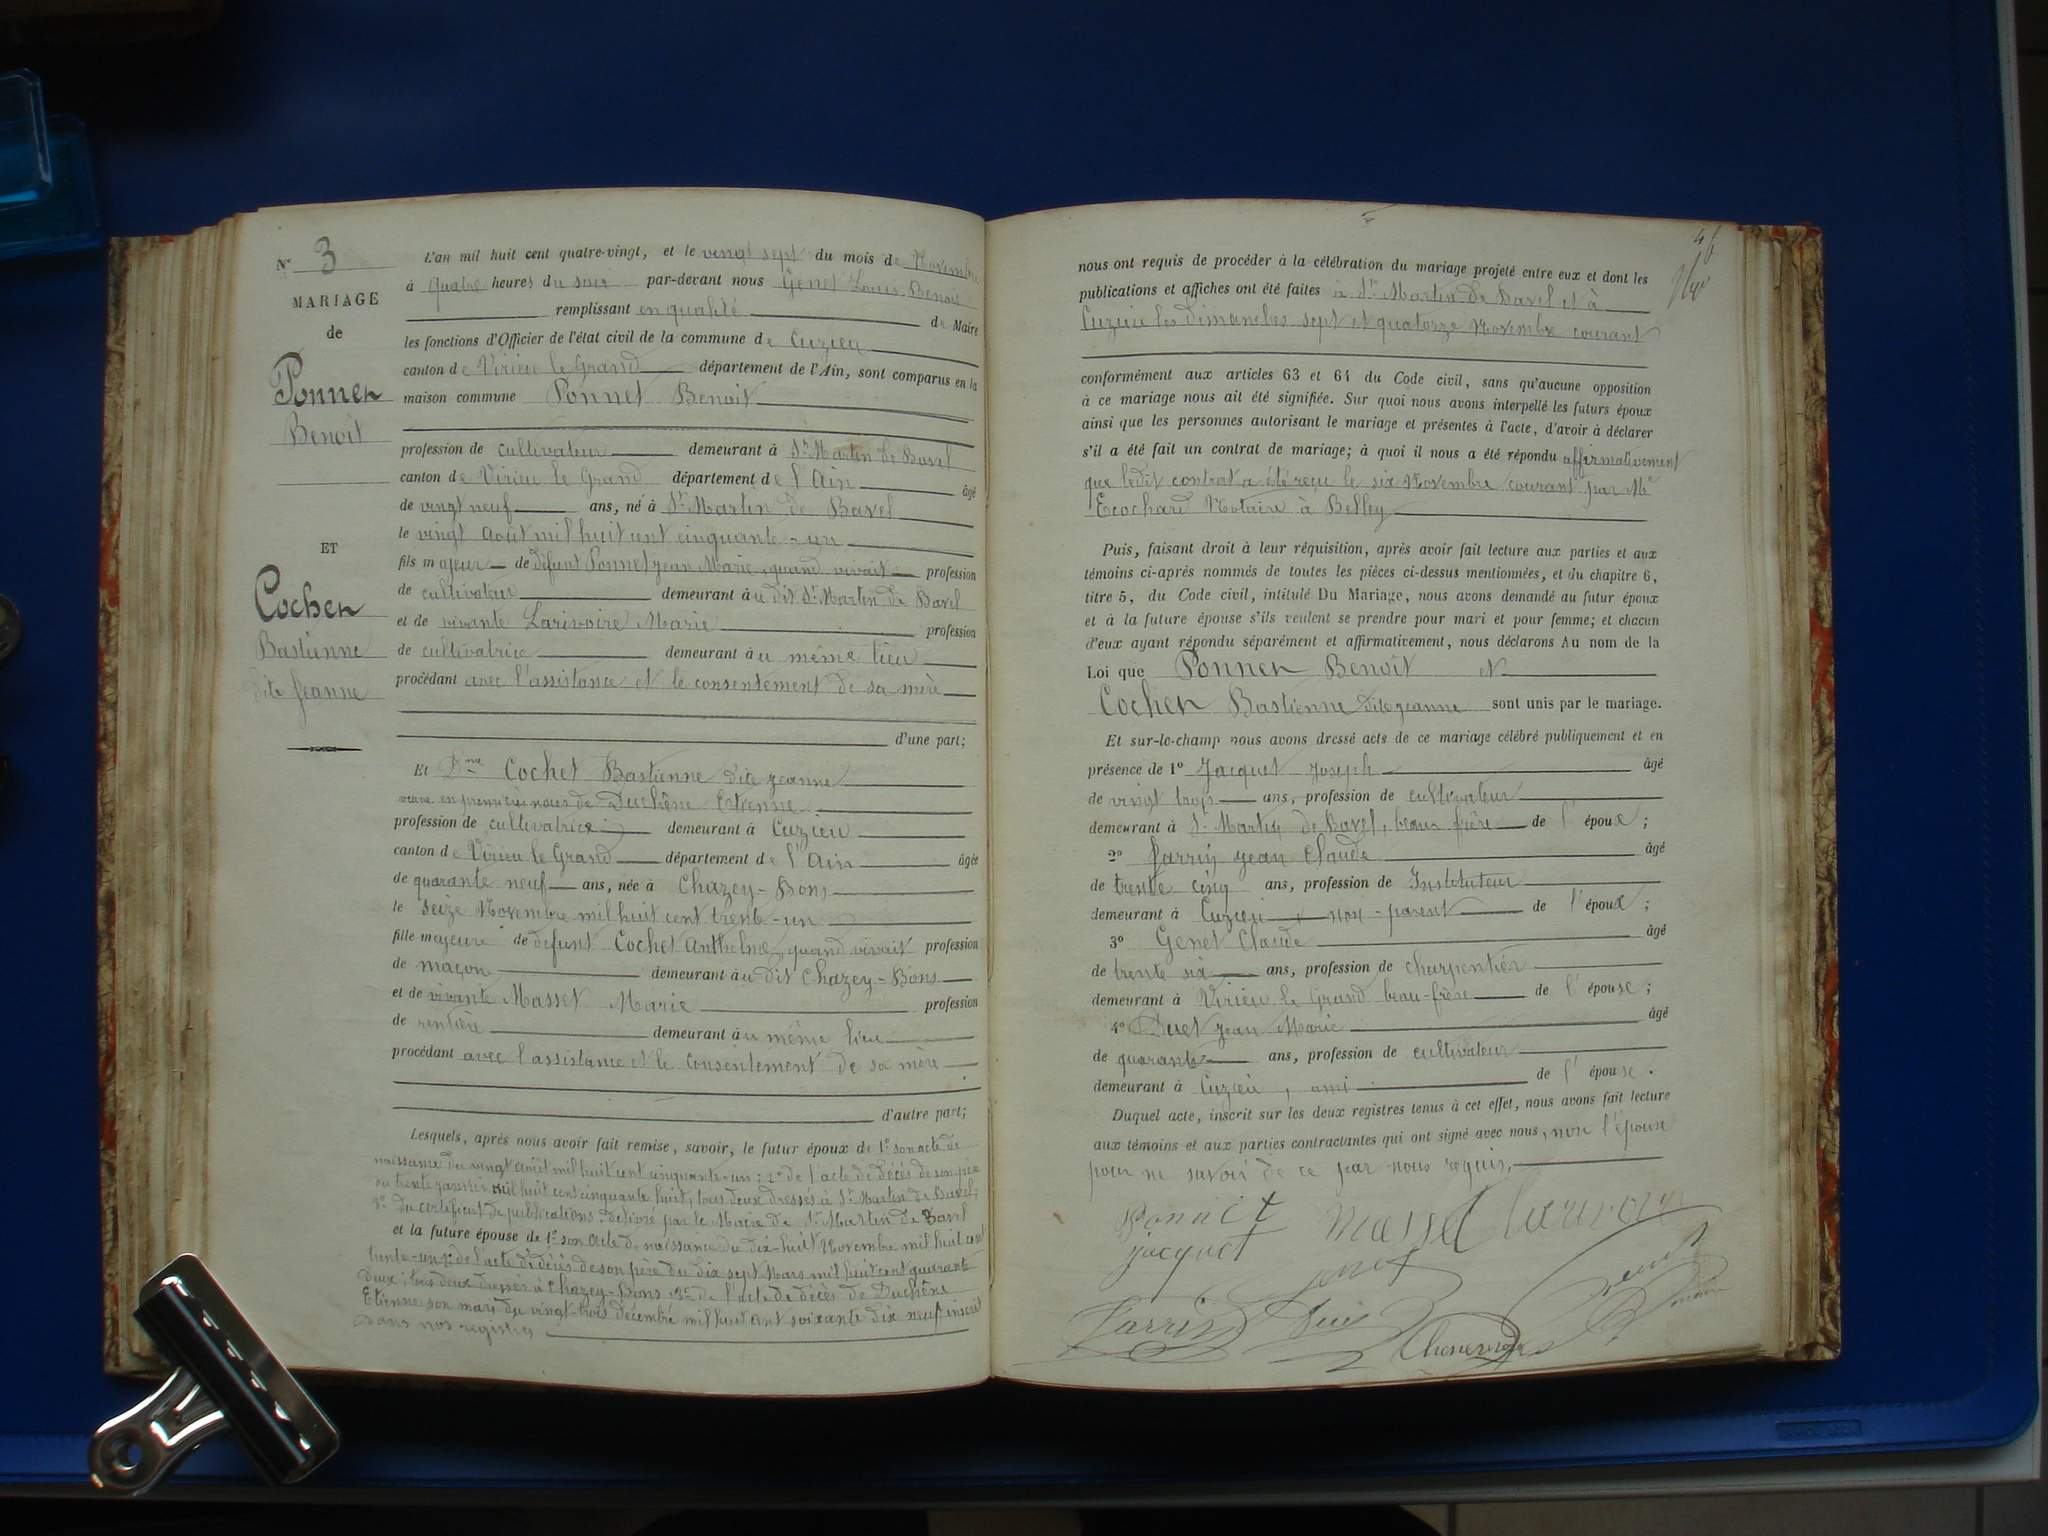 N° 3
MARIAGE
de
Ponnet
Benoit
ET
Cochet
Bastienne
dite Jeanne
L'an mil huit cent quatre-vingt, et le vingt sept du mois de Novembre
à quatre heures du soir par-devant nous Genet Louis Benoit
remplissant en qualité de Maire
les fonctions d'Officier de l'état civil de la commune de Cuzieu
canton de Virieu le Grand département de l'Ain, sont comparus en la
maison commune Ponnet Benoit
profession de cultivateur demeurant à St Martin de Bavel
canton de Virieu le Grand département de l'Ain âgé
de vingt neuf ans, né à St Martin de Bavel
le vingt Août mil huit cent cinquante-un
fils majeur de défunt Ponnet Jean Marie, quand vivait profession
de cultivateur demeurant au dit St Martin de Bavel
et de vivante Larivoire Marie profession
de cultivatrice demeurant au même lieu
procédant avec l'assistance et le consentement de sa mère
d'une part;
Et Dme Cochet Bastienne dite Jeanne
veuve en premières noces de Duchêne Etienne
profession de cultivatrice demeurant à Cuzieu
canton de Virieu le Grand département de l'Ain âgée
de quarante neuf ans, née à Chazey-Bons
le seize Novembre mil huit cent trente-un
fille majeure de défunt Cochet Anthelme quand vivait profession
de maçon demeurant au dit Chazey-Bons
et de vivante Masset Marie profession
de rentière demeurant au même lieu
procédant avec l'assistance et le consentement de sa mère
d'autre part;
Lesquels, après nous avoir fait remise, savoir, le futur époux de 1° son acte de
naissance du vingt Août mil huit cent cinquante-un; 2° de l'acte de décès de son père
du trente janvier mil huit cent cinquante huit, tous deux dressés à St Martin de Bavel;
3° du certificat de publications délivré par le Maire de St Martin de Bavel
et la future épouse de 1° son acte de naissance du dix-huit Novembre mil huit cent
trente-un; 2° de l'acte de décès de son père du dix sept Mars mil huit cent quarante
deux; tous deux dressés à Chazey-Bons 3° de l'acte de décès de Duchêne
Etienne son mari du vingt-trois décembre mil huit cent soixante dix neuf inscrit
dans nos registres
nous ont requis de procéder à la célébration du mariage projeté entre eux et dont les
publications et affiches ont été faites à St Martin de Bavel et à
Cuzieu les dimanches sept et quatorze Novembre courant
conformément aux articles 63 et 64 du Code civil, sans qu'aucune opposition
à ce mariage nous ait été signifiée. Sur quoi nous avons interpellé les futurs époux
ainsi que les personnes autorisant le mariage et présentes à l'acte, d'avoir à déclarer
s'il a été fait un contrat de mariage; à quoi il nous a été répondu affirmativement
que ledit contrat a été reçu le six Novembre courant par Me
Ecochard Notaire à Belley
Puis, faisant droit à leur réquisition, après avoir fait lecture aux parties et aux
témoins ci-après nommés de toutes les pièces ci-dessus mentionnées, et du chapitre 6,
titre 5, du Code civil, intitulé Du Mariage, nous avons demandé au futur époux
et à la future épouse s'ils veulent se prendre pour mari et pour femme; et chacun
d'eux ayant répondu séparément et affirmativement, nous déclarons Au nom de la
Loi que Ponnet Benoit et
Cochet Bastienne dite Jeanne sont unis par le mariage.
Et sur-le-champ nous avons dressé acte de ce mariage célébré publiquement et en
présence de 1° Jacquet Joseph âgé
de vingt trois ans, profession de cultivateur
demeurant à St Martin de Bavel, beau frère de l'époux;
2° Jarrin Jean Claude âgé
de trente cinq ans, profession de Instituteur
demeurant à Cuzieu non-parent de l'époux;
3° Genet Claude âgé
de trente six ans, profession de charpentier
demeurant à Virieu le Grand beau-frère de l'épouse;
4° Duet Jean Marie âgé
de quarante ans, profession de cultivateur
demeurant à Cuzieu, ami de l'épouse.
Duquel acte, inscrit sur les deux registres tenus à cet effet, nous avons fait lecture
aux témoins et aux parties contractantes qui ont signé avec nous, non l'épouse
pour ne savoir de ce par nous requis.
Ponnet Masset Larivoire
Jacquet Genet
Jarrin